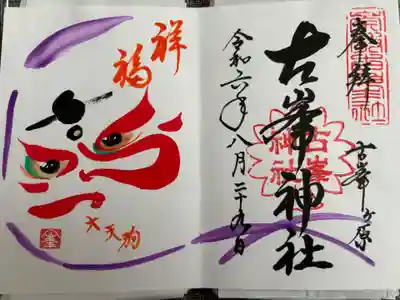 奉拝
古峯ヶ原
古峯神社
古峯神社
令和六年八月二十九日
祥
福
大天狗
峯